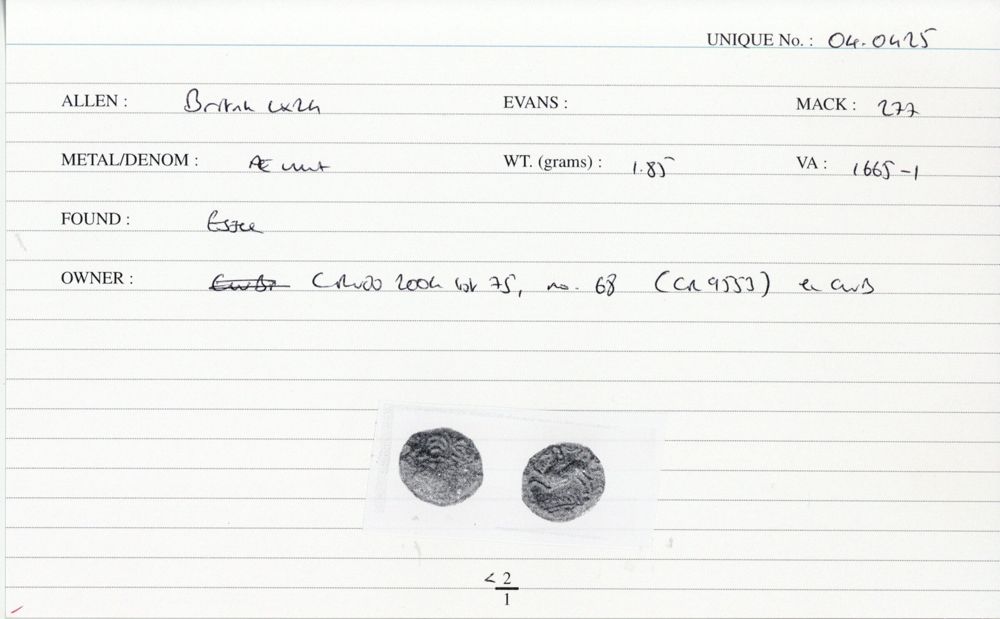 UNIQUE No. : 04.0425
ALLEN : British LX24 EVANS : MACK : 277
METAL/DENOM : Æ unit WT. (grams) : 1.85 VA : 1665-1
FOUND : Essex
OWNER : CRUB 2004 list 75, no. 68 (CR 9553) ex CWB
< 2
1